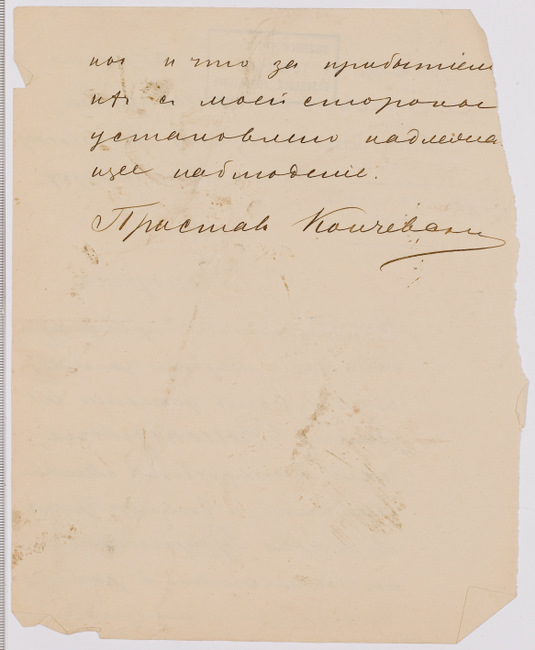 ны и что за прибытіем
ихъ съ моей стороны
установлено надлежа
щее наблюденіе.
Приставъ